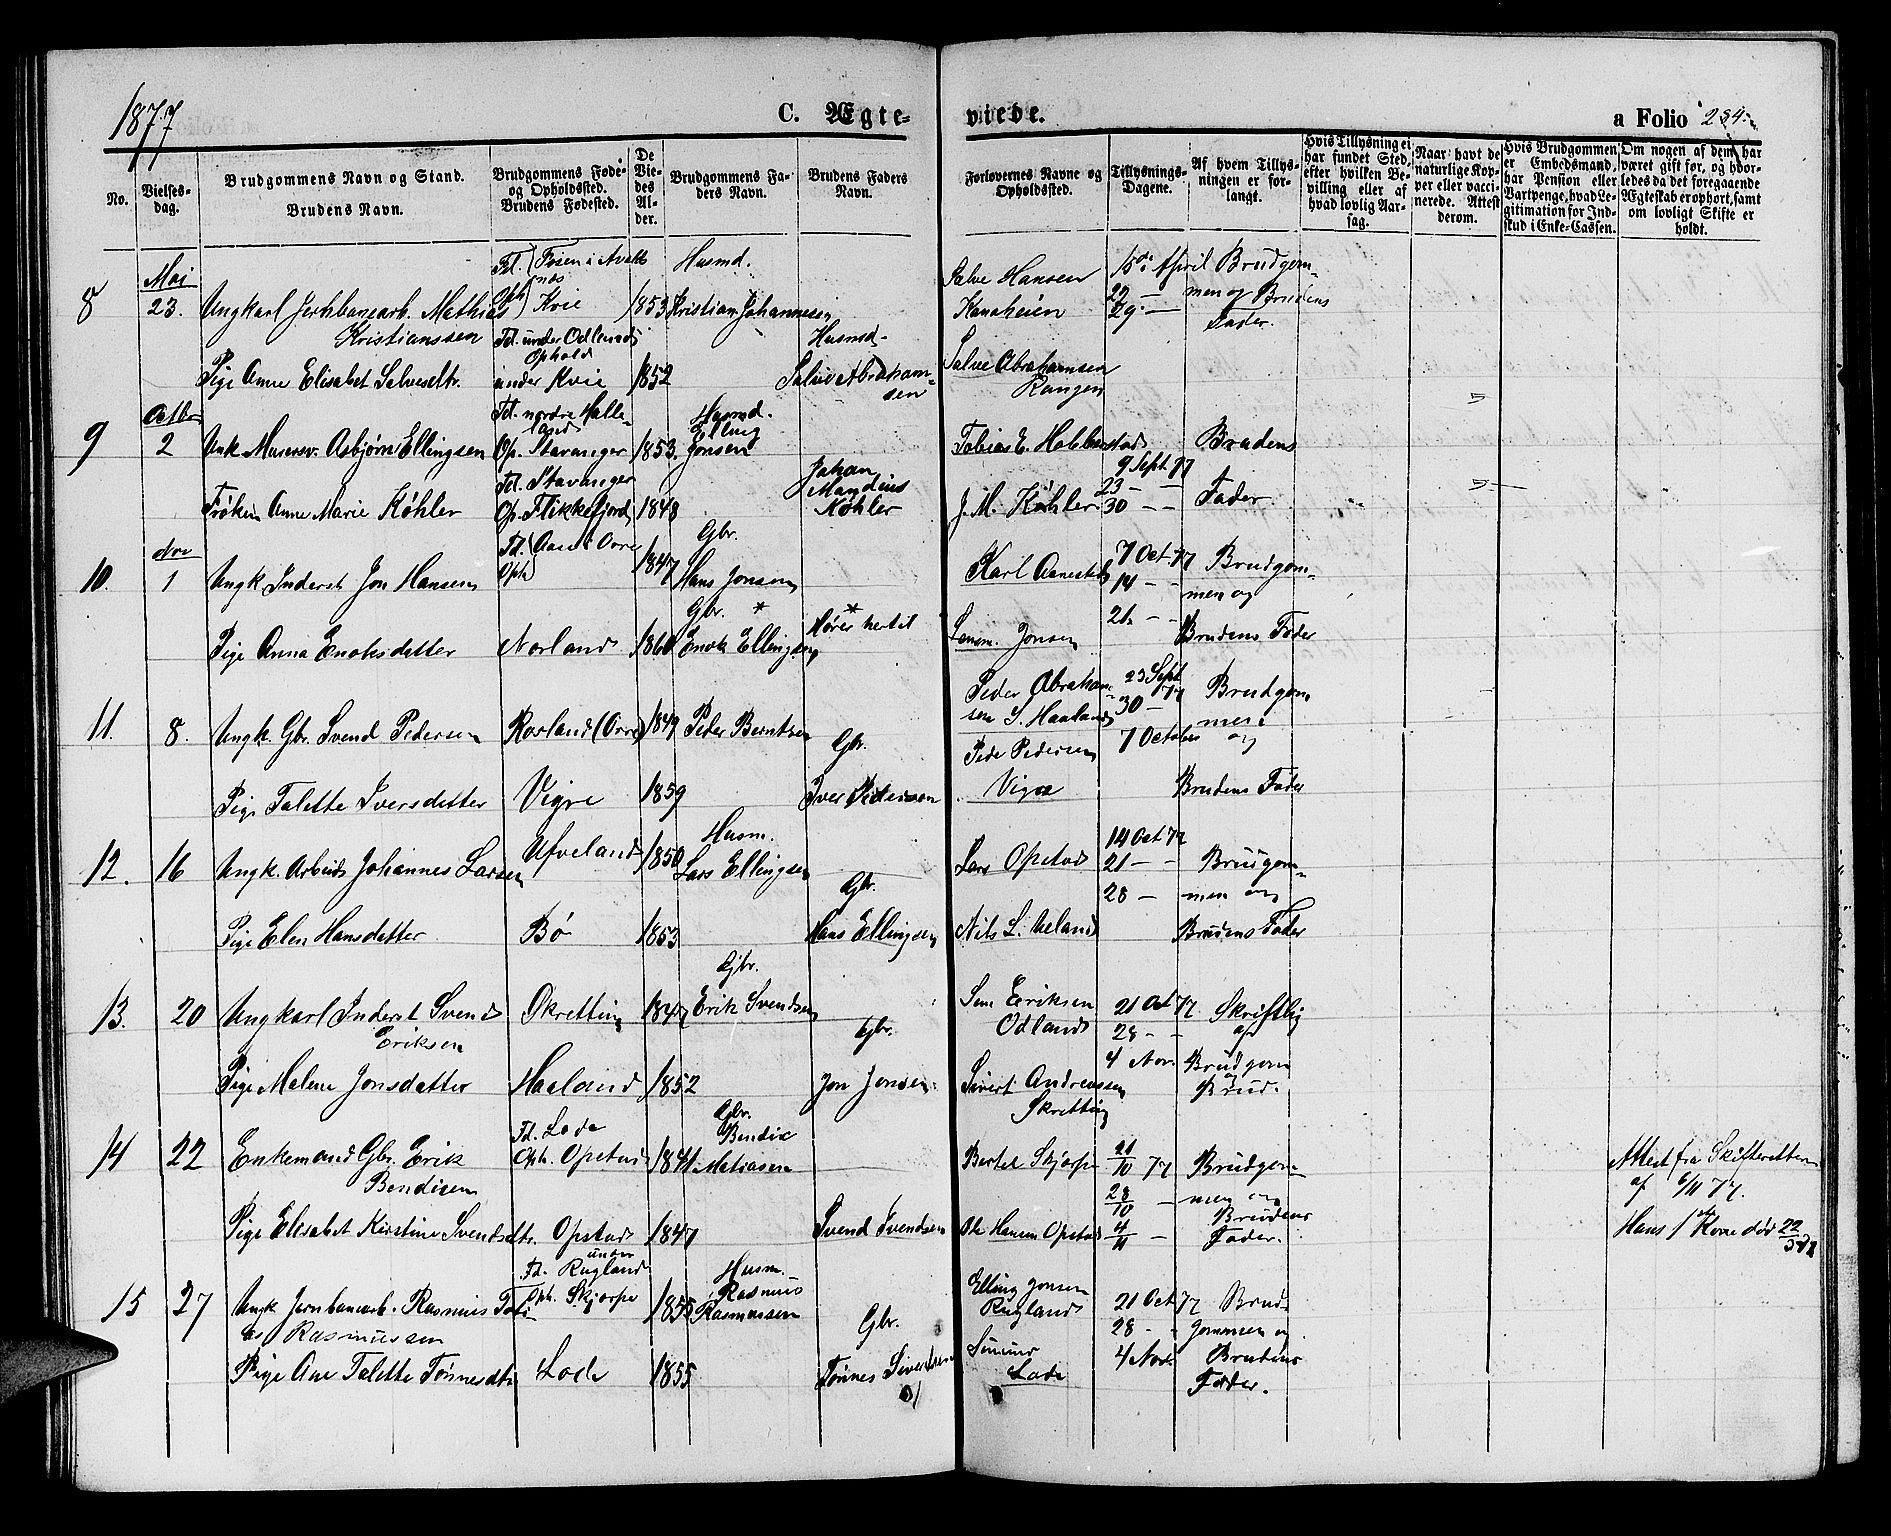 1877
C. Ægte-
viede.
a Folio 234.
No.
Vielses-
dag.
Brudgommens Navn og Stand.
Brudens Navn.
Brudgommens Føde-
og Opholdssted.
Brudens Fødested.
De
Vie-
des
Al-
der.
Brudgommens Fa-
ders Navn.
Brudens Faders
Navn.
Forlovernes Navne og
Opholdssted.
Tillysnings-
Dagene.
Af hvem Tillys-
ningen er for-
langt.
Hvis Tillysning ei
har fundet Sted,
efter hvilken Be-
villing eller af
hvad lovlig Aar-
sag.
Naar havt de
naturlige Kop-
per eller vacci-
nerede. Attest
derom.
Hvis Brudgommen
er Embedsmand,
har Pension eller
Vartpenge, hvad Le-
gitimation for Ind-
skud i Enke-Cassen.
Om nogen af dem har
været gift før, og hvor-
ledes da det foregaaende
Ægteskab er ophørt, samt
om lovligt Skifte er
holdt.
8
Mai
23.
Ungkarl Jernbanearb. Mathias
Kristianssen
Fd. Fosen i Avalds
nes
Oph. Kvie
1853
Husmd.
Kristian Johannesen
Salve Hansen
Kanaheien
15de April
22 —
29 —
Brudgom-
men og Brudens
Fader.
Pige Anne Elisabet Salvesdtr.
Fd. under Odlands
Ophold
under Kvie
1852
Husmd.
Salve Abraham-
sen
Salve Abrahamsen
Rangen
9
Octbr
2
Unk. Murersv. Asbjørn Ellingsen
Fd. nordre Halle-
land
Op. Stavanger
1853.
Husmd.
Elling
Jonsen
Tobias E. Hobberstad
9 Sept 77
23 — —
30 — —
Brudens
Fader.
Frøken Anne Marie Køhler
Fd. Stavanger
Op. Flikkefjord
1848
Johan
Mandius
Køhler
J. M. Køhler
10.
Nov
1
Ungk. Inderst Jon Hansen
Fd. Aan i Orre
Oph
1847
Gbr.
Hans Jonsen
Karl Aanestad
7 Oct. 77
14 — —
21. — —
Brudgom-
men og
Brudens Fader
Pige Anna Enoksdatter
Norland
1860
Gbr. *
Enok Ellingsen
*
Hører hertil
Lensm. Jonsen
11.
8.
Ungk. Gbr. Svend Pedersen
Rorland (Orre)
1849
Peder Berntsen
Peder Abraham-
sen S. Haaland
23 Sept
30 — 77
7 October
Brudgom
men
og
Brudens Fader
Pige Talette Iversdatter
Vigre
1859
Gbr.
Iver Pedersen
Peder Pedersen
Vigre
12.
16
Ungk. Arbeids Johannes Larsen
Ufveland
1850
Husm.
Lars Ellingsen
Lars Opstad
14 Oct 77
21 — —
28 —
Brudgom-
men og
Brudens Fader
Pige Elen Hansdatter
Bø
1853
Gbr.
Hans Ellingsen
Nils L. Ueland
13.
20
Ungkarl Inderst Svend
Eriksen
Skretting
1847
Gbr.
Erik Svendsen
Sem Eriksen
Odland
21 Oct 77
28 — —
4 Nov.
Skriftlig
af
Brudgom
og
Brud.
Pige Malene Jonsdatter
Haaland
1852
Gbr.
Jon Jonsen
Sivert Andreassen
Skretting
14
22
Enkemand Gbr. Erik
Bendixen
Fd. Lode
Oph. Opstad
1841
Gbr.
Bendix
Matiasen
Bertel Skjorpe
21/10 77
28/10 —
4/11 —
Brudgom-
men og
Brudens
Fader.
Attest fra Skifteretten
af 6/11 77.
Hans 1ste Kone død 22/5 72
Pige Elisabet Kirstine Svendsdtr.
Opstad
1847
Svend Svendsen
Ole Hansen Opstad
15
27
Ungk Jernbanearb. Rasmus Tobi-
as Rasmussen
under
Fd. Rugland
Oph. Skjorpe
1855
Husm.
Rasmus
Rasmussen
Elling Jonsen
Rugland
21 Oct 77
28 —
4 Nov.
Brud-
gommen og
Brudens
Fader.
Pige Ane Talette Tønnesdtr
Lode
1855
Gbr.
Tønnes Sivertsen
Lode